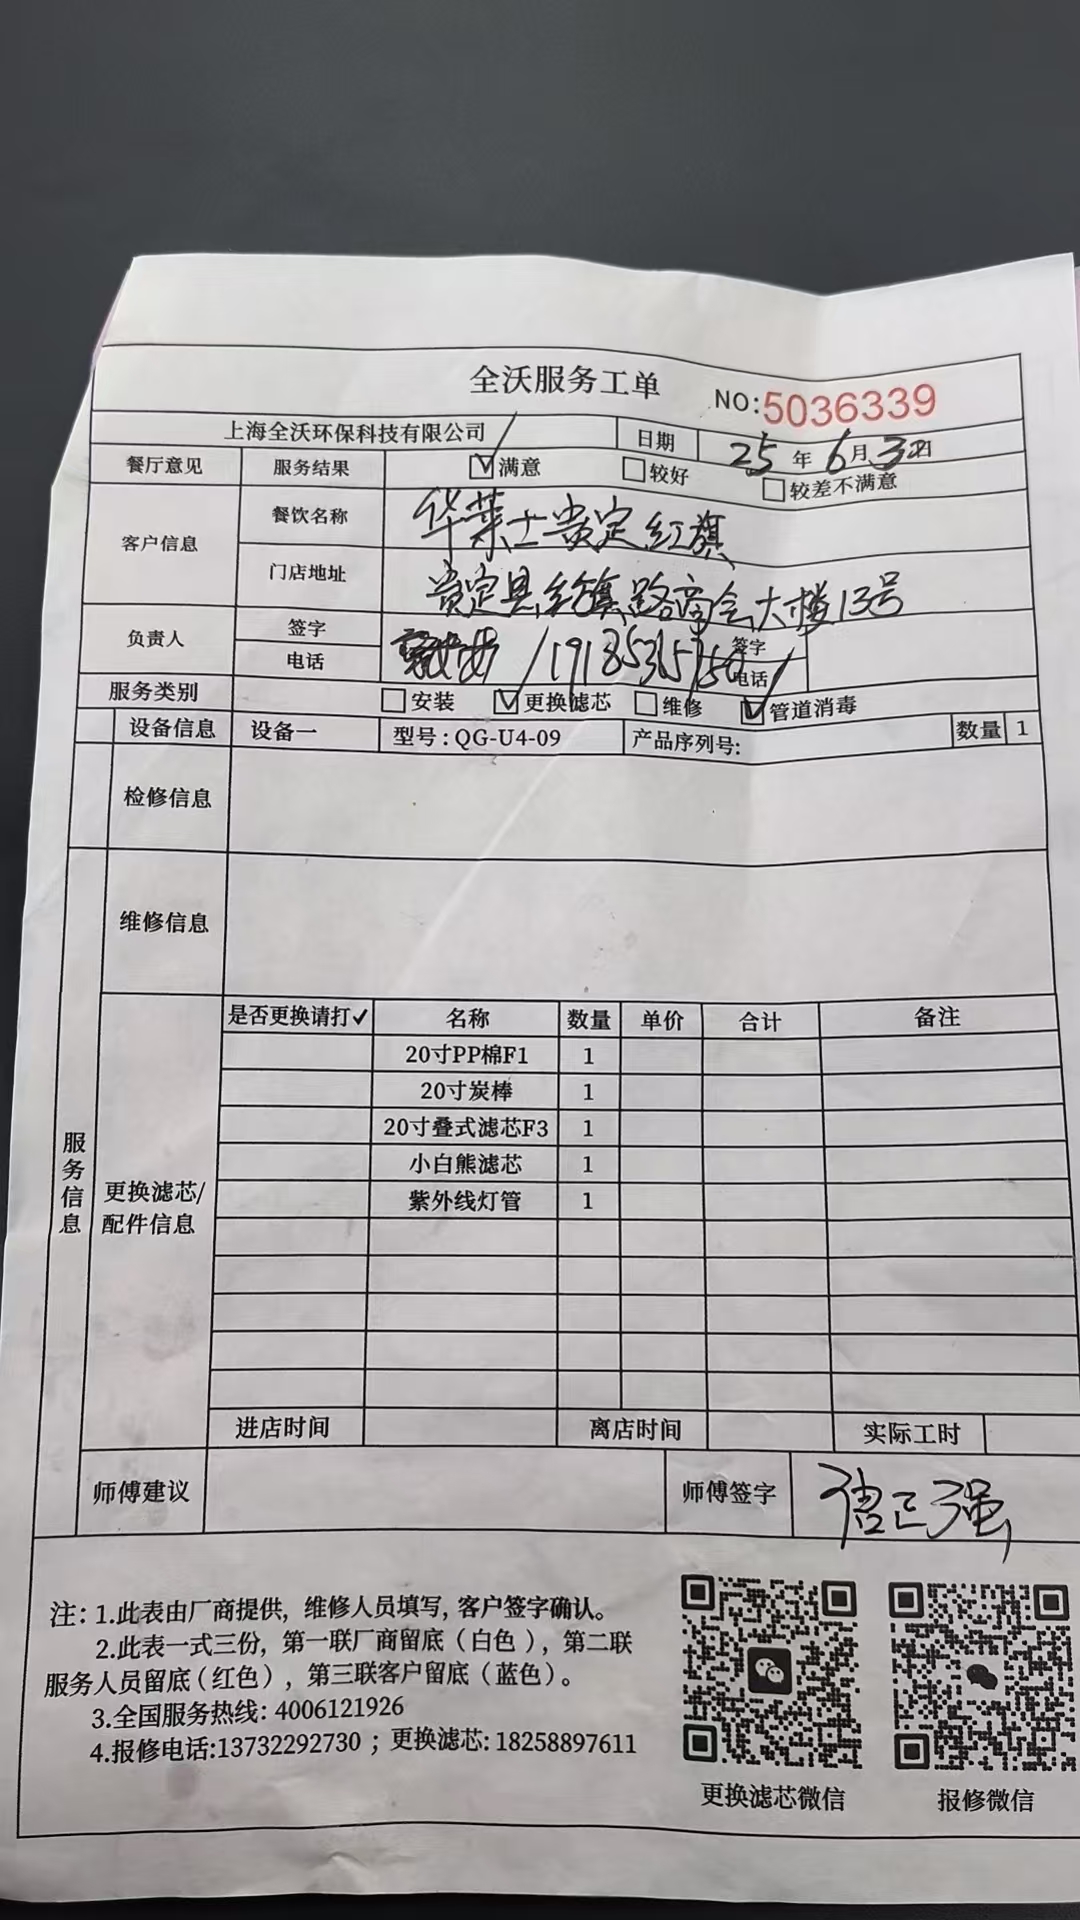 全沃服务工单 NO:5036339
上海全沃环保科技有限公司 日期 25年6月3日
餐厅意见 服务结果 ☑满意 □较好 □较差不满意
客户信息 餐饮名称 华莱士贵定红旗
门店地址 贵定县红旗路商会大楼13号
负责人 签字 签字
电话 电话
服务类别 □安装 ☑更换滤芯 □维修 ☑管道消毒
设备信息 设备一 型号:QG-U4-09 产品序列号: 数量 1
检修信息
维修信息
服务信息
更换滤芯/配件信息
是否更换请打✓ 名称 数量 单价 合计 备注
20寸PP棉F1 1
20寸炭棒 1
20寸叠式滤芯F3 1
小白熊滤芯 1
紫外线灯管 1
进店时间 离店时间 实际工时
师傅建议 师傅签字 正强
注:1.此表由厂商提供,维修人员填写,客户签字确认。
2.此表一式三份,第一联厂商留底(白色),第二联
服务人员留底(红色),第三联客户留底(蓝色)。
3.全国服务热线:4006121926
4.报修电话:13732292730;更换滤芯:18258897611
更换滤芯微信 报修微信